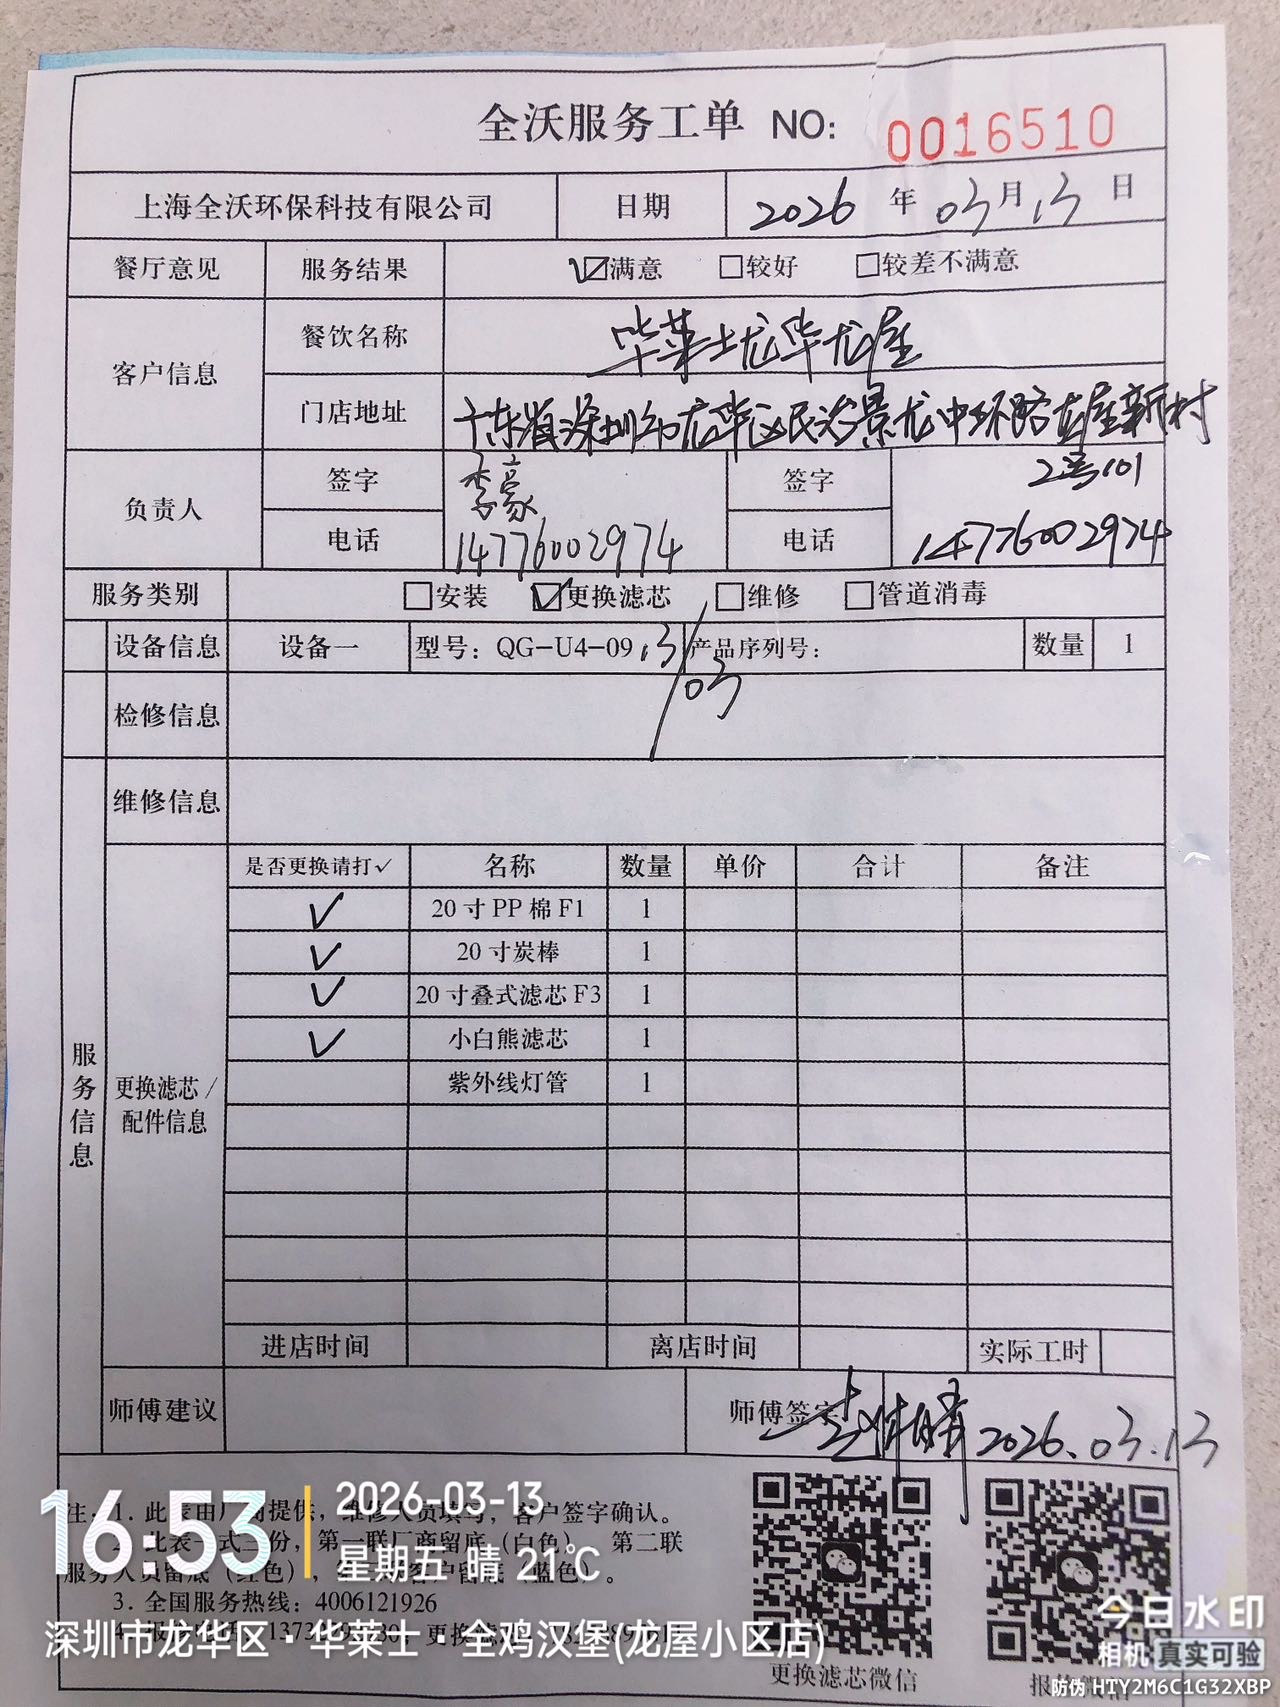 全沃服务工单 NO: 0016510
上海全沃环保科技有限公司 日期 2026 年 03 月 13 日
餐厅意见 服务结果 ☑满意 □较好 □较差不满意
客户信息 餐饮名称 华莱士龙华龙屋
门店地址 广东省深圳市龙华区民治景龙中环路龙屋新村
2号101
负责人 签字 李豪 签字
电话 14776002974 电话 14776002974
服务类别 □安装 ☑更换滤芯 □维修 □管道消毒
设备信息 设备一 型号：QG-U4-09 产品序列号： 数量 1
13/03
检修信息
维修信息
是否更换请打✓ 名称 数量 单价 合计 备注
✓ 20寸PP棉F1 1
✓ 20寸炭棒 1
✓ 20寸叠式滤芯F3 1
✓ 小白熊滤芯 1
紫外线灯管 1
服务信息
更换滤芯/
配件信息
进店时间 离店时间 实际工时
师傅建议 师傅签字 2026.03.13
注：1. 此表由厂商提供，维修人员填写，客户签字确认。
2. 此表一式三份，第一联厂商留底（白色）。 第二联
服务人员留底（红色），客户留底（蓝色）。
3. 全国服务热线：4006121926
更换滤芯微信
16:53
2026-03-13
星期五 晴 21°C
深圳市龙华区·华莱士·全鸡汉堡(龙屋小区店)
今日水印
相机 真实可验
防伪 HTY2M6C1G32XBP